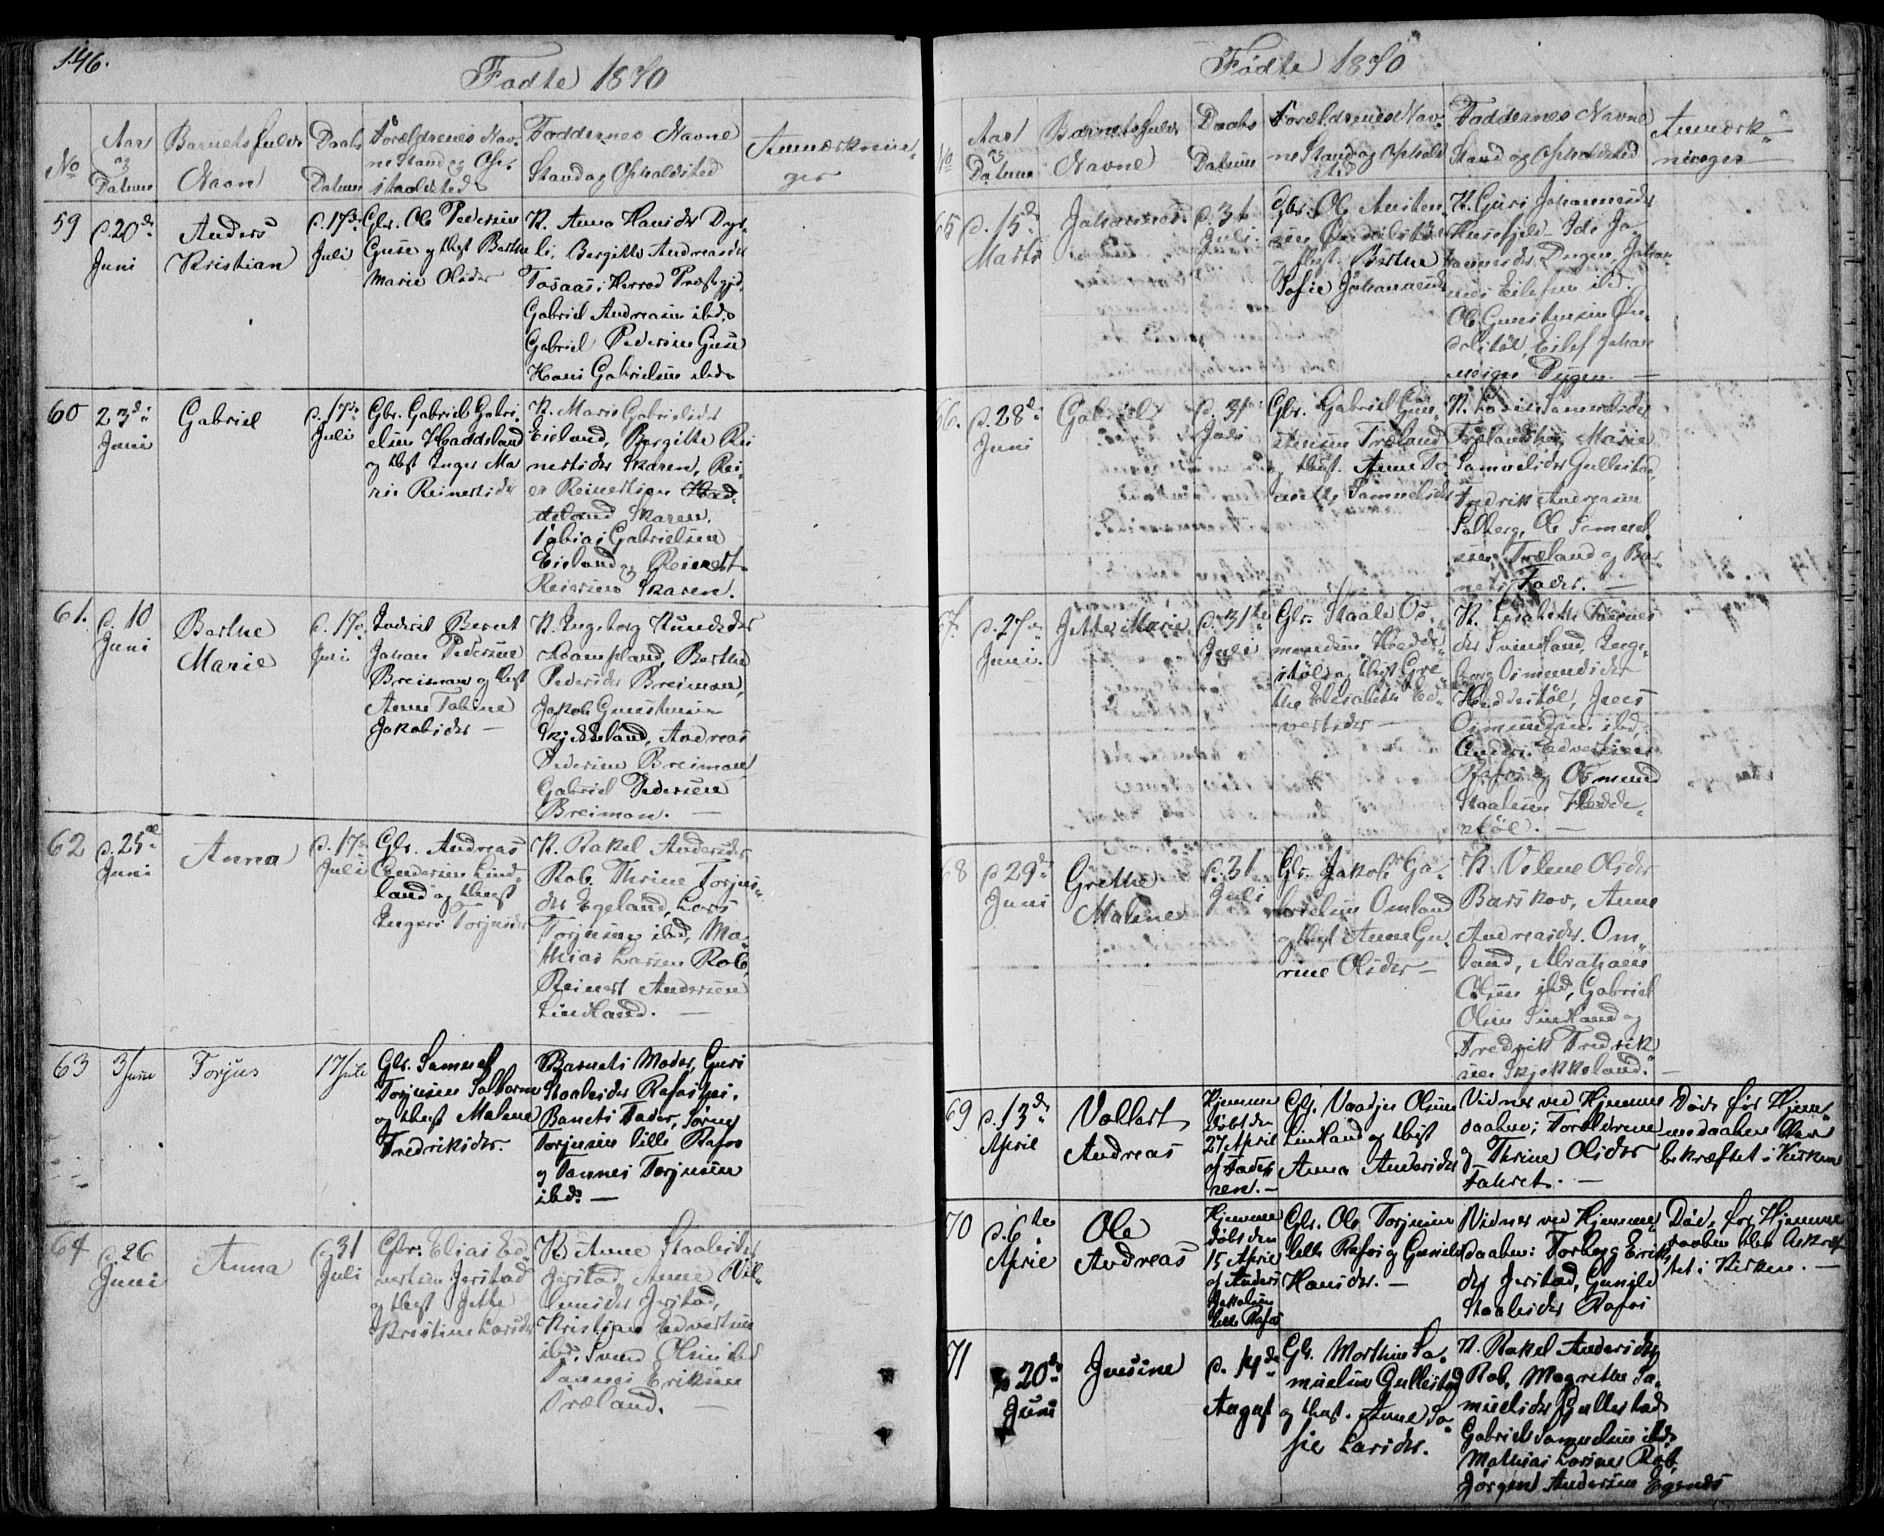 146.
Fødte 1870
No
Aar og Datum
Barnets fulde Navn
Daabs Datum
Forældrenes Navne Stand og Opholdsted
Faddernes Navne Stand og Opholdsted
Anmærkninger
59
d. 20de Juni
Anders Kristian
d. 17de Juli
Gbr. Ole Pedersen
Guse og Hust Berthe
Marie Olsdr
K. Anna Hansdr Dys-
li, Bergitte Andreasdr
Tosaas i Herred Præstegjd,
Gabriel Andreasen ibd.
Gabriel Pedersen Guse
Hans Gabrielsen ibd.
60
23de Juni
Gabriel
d. 17de Juli
Gbr. Gabriel Gabri-
elsen Haddeland
og Hust Inger Ma
rie Reinertsdr
K. Marie Gabrielsdr
Eieland, Bergitte Rei
nertsdr Skaren, Rei-
er Reinertsen Had-
deland Skaren.
Tobias Gabrielsen
Eieland og Reinert
Reiersen Skaren.
61.
d. 10 Juni
Berthe
Marie
d. 17de Juli
Inderst Bernt
Johan Pedersen
Breiman og Hust
Anne Tobine
Jakobsdr
K. Ingeborg Knudsdr
Berthe
Pedersdr Breiman,
Jakob Gunstensen
Skjekkeland, Andreas
Pedersen Breiman,
Gabriel Pedersen
Breiman.
62
d. 25de Juni
Anna
d. 17de Juli
Gbr. Andreas
Andersen Lind-
land og Hust
Ingeri Torjusdr
K. Rakel Andersdr
Rob, Thrine Torjus-
dr Egeland, Lars
Torjusen ibd, Ma-
thias Larsen Rob,
Reinert Andersen
Lindland.
63
3 Juni
Torjus
17 Juli
Gbr. Samuel
Torjusen Solborn
og Hust Malene
Fredriksdr.
Barnets Moder, Guri
Staalesdr Rafos hei.
Barnets Fader, Sørne
Torjusen lille Rafos
og Tønnes Torjusen
ibd.
64
d. 26 Juni
Anna
d. 31 Juli
Gbr. Elias Ed-
vertsen Jerstad
og Hust Jette
Kristine Larsdr
K. Anne Staalesdr
Jerstad, Anne Vil-
lumsdr Jerstad,
Kristian Edvertsen
ibd. Svend Olsen ibd
Tønnes Eriksen
Træland.
Fødte 1870
No
Aar og Datum
Barnets fulde Navne
Daabs Datum
Forældrenes Navne Stand og Opholdsted
Faddernes Navne Stand og Opholdsted
Anmærkninger
65
d. 15de Marts
Johannes
d. 31 Juli
Gbr. Ole
Hust. Berthe
Sofie Johannesdr
K. Guri Johannesdr
Eilef Johan
66.
d. 28de Juni
Gabriel
d. 31 Juli
Gbr. Gabriel Gun-
stensen Træland
og Hust. Anne To-
mette Samuelsdr
Marie
Samuelsdr Gullestad,
Fredrik Andreasen
Solberg, Ole Samuel-
sen Træland og Bar-
nets Fader.
67.
d. 27de Juni.
Jette Marie
d. 31te Juli
Gbr. Staale Os-
mundsen Hedde-
støl og Hust Gre-
the Elisabeth Ed-
vertsdr
K. Lisabeth Tønnes
dr Svindland, Inge-
borg Osmundsdr
Heddestøl, Jens
Osmundsen ibd,
Anders Edvertsen
Rafos og Osmund
Staalesen Hedde-
støl.
68
d. 29de Juni
Grethe
Malene
d. 31 Juli
Gbr. Jakob Ga-
brielsen Omland
og Hust Anne Gu-
rine Olsdr
K. Velene Olsdr
Barskov, Anne
Andreasdr. Om-
land, Abraham
Olsen ibd, Gabriel
Olsen Lindland og
Fredrik Fredrik
sen Skjekkeland.
69
d. 13de April
Vollert
Andreas
Hjemme
døbt den
27 April
af Fade-
ren.
Gbr. Vradju Olsen
Lindland og Hust
Anna Andersdr
Vidner ved Hjemme
daaben; Forældrene
og Thrine Olsdr
Fahret.
Døde før Hjem-
medaaben blev
bekræftet i Kirken
70
d. 6te April
Ole
Andreas
Hjemme
døbt den
15 April
af Anders
Jakobsen
lille Rafos
Gbr. Ole Torjusen
lille Rafos og Gunild
Hansdr.
Vidner ved Hjemme
daaben: Torborg Eriks
dr Jerstad, Gunild
Staalesdr Rafos
Død, før Hjemme
daaben blev bekræf
tet i Kirken.
71
d. 20de Juni
Jensine
d. 14de August
Gbr. Morthen Sa-
muelsen Gullestad
og Hust. Anne So-
fie Larsdr.
K. Rakel Andersdr
Rob, Magrethe Sa-
muelsdr Gullestad
Gabriel Samuelsen ibd.
Mathias Larsen Rob.
Jørgen Andersen Egenes